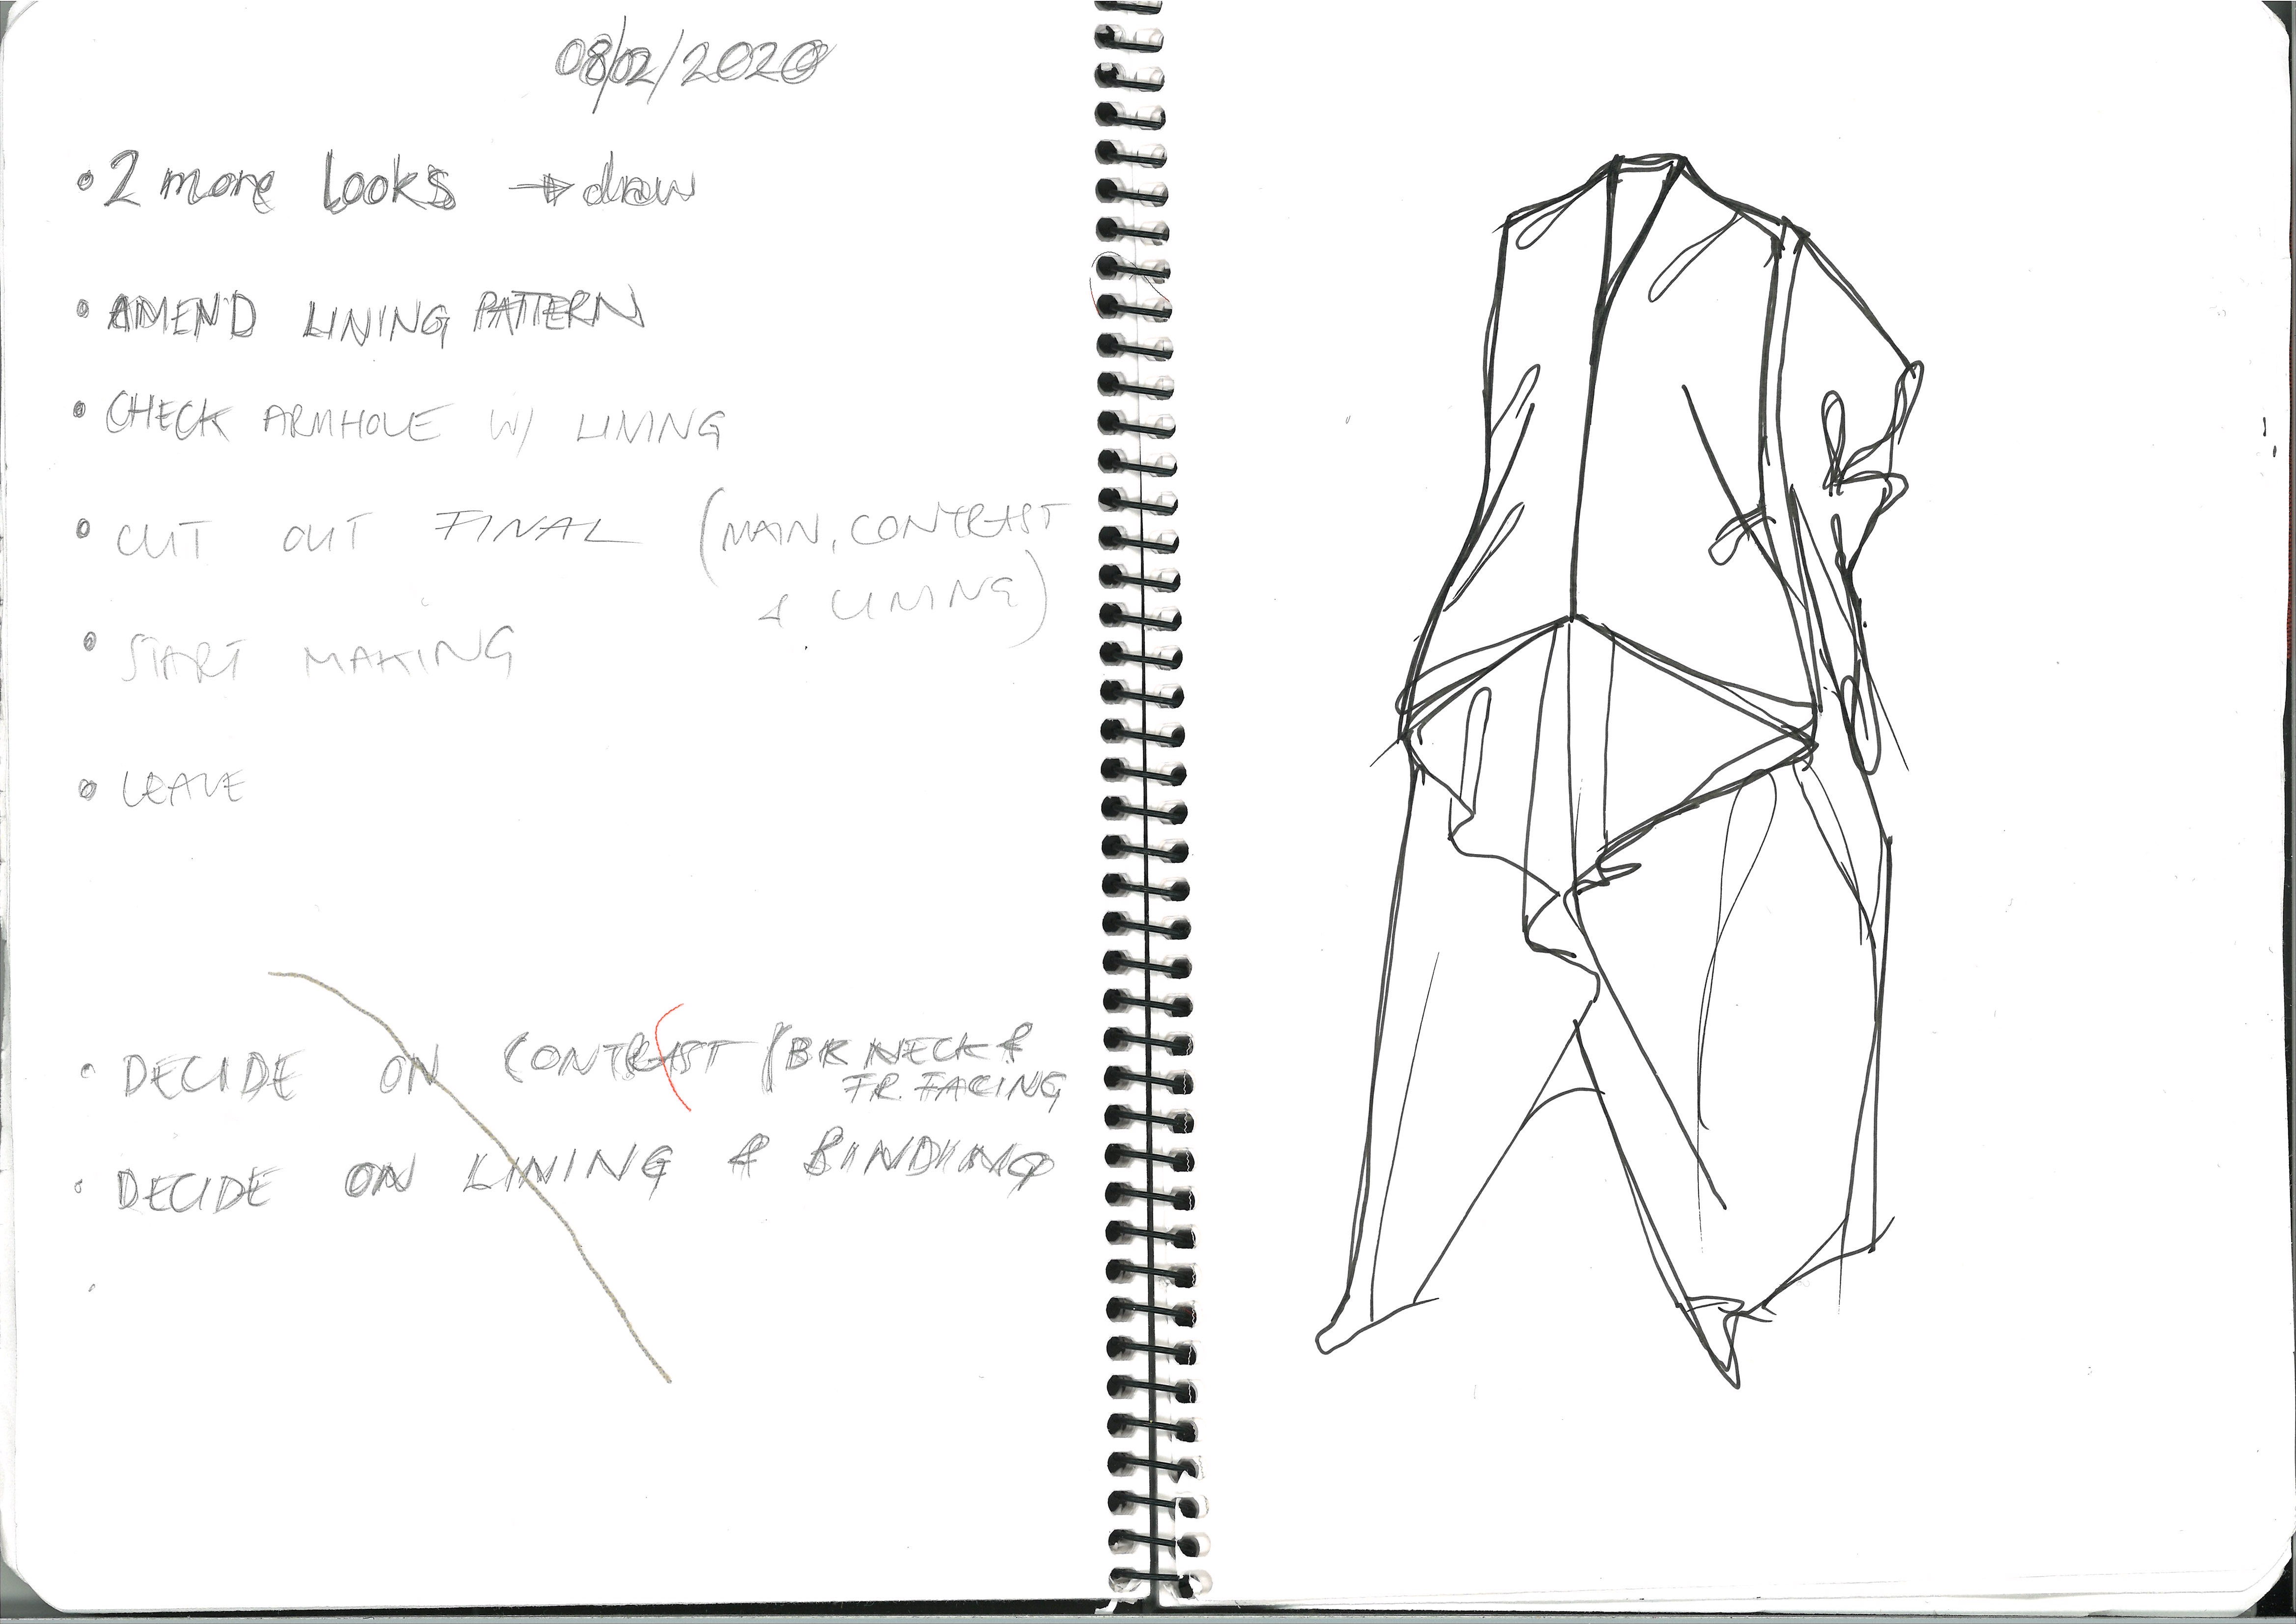 08/02/2020
• 2 more looks → draw
• AMEND LINING PATTERN
• CHECK ARMHOLE W/ LINING
• CUT OUT FINAL (MAIN, CONTRAST
& LINING)
• START MAKING
• LEAVE
• DECIDE ON CONTRAST (BK NECK &
FR. FACING
• DECIDE ON LINING & BINDING